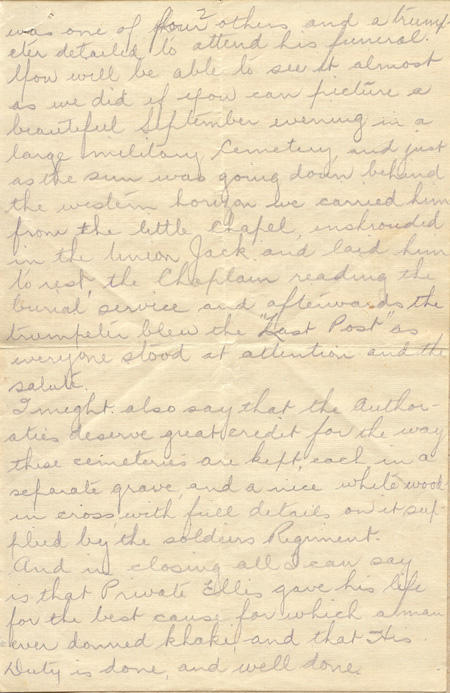 2
was one of four others and a trump-
eter detailed to attend his funeral.
You will be able to see it almost
as we did if you can picture a
beautiful September evening in a
large military Cemetery, and just
as the sun was going down behind
the western horizon we carried him
from the little Chapel, enshrouded
in the Union Jack and laid him
to rest, the Chaplain reading the
burial service and afterwards the
trumpeter blew the "Last Post" as
everyone stood at attention and the
salute.
I might also say that the Author-
aties deserve great credit for the way
these cemeteries are kept, each in a
separate grave and a nice white wood-
in cross, with full details on it sup-
plied by the soldiers Regiment.
And in closing all I can say
is that Private Ellis gave his life
for the best cause for which a man
ever donned khaki, and that His
Duty is done, and well done.